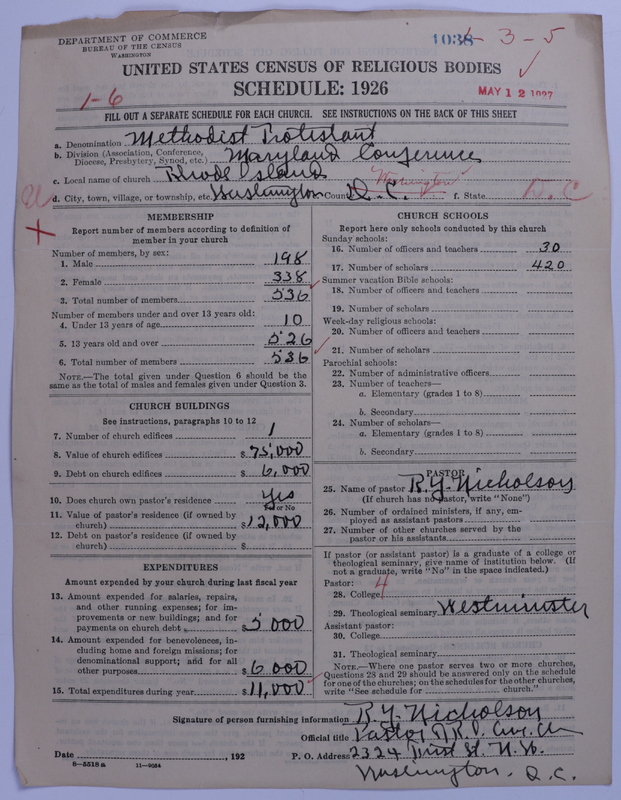 DEPARTMENT OF COMMERCE
BUREAU OF THE CENSUS
WASHINGTON
1038
1-3-5
UNITED STATES CENSUS OF RELIGIOUS BODIES
SCHEDULE: 1926
MAY 12 1927
1-6
FILL OUT A SEPARATE SCHEDULE FOR EACH CHURCH. SEE INSTRUCTIONS ON THE BACK OF THIS SHEET
a. Denomination Methodist Protestant
b. Division (Association, Conference, Diocese, Presbytery, Synod, etc.) Maryland Conference
c. Local name of church Rhode Island
d. City, town, village, or township, etc. Washington County D.C. Washington f. State D.C
MEMBERSHIP
Report number of members according to definition of
member in your church
Number of members, by sex:
1. Male 198
2. Female 338
3. Total number of members 536
Number of members under and over 13 years old:
4. Under 13 years of age 10
5. 13 years old and over 526
6. Total number of members 536
NOTE.—The total given under Question 6 should be
same as the total of males and females given under Question 3.
CHURCH BUILDINGS
See instructions, paragraphs 10 to 12
7. Number of church edifices 1
8. Value of church edifices $75,000
9. Debt on church edifices $6,000
10. Does church own pastor's residence yes
Yes or No
11. Value of pastor's residence (if owned by
church) $12,000
12. Debt on pastor's residence (if owned by
church) $
EXPENDITURES
Amount expended by your church during last fiscal year
13. Amount expended for salaries, repairs,
and other running expenses; for im-
provements or new buildings; and for
payments on church debt $5000
14. Amount expended for benevolences, in-
cluding home and foreign missions; for
denominational support; and for all
other purposes $6000
15. Total expenditures during year $11,000
CHURCH SCHOOLS
Report here only schools conducted by this church
Sunday schools:
16. Number of officers and teachers 30
17. Number of scholars 420
Summer vacation Bible schools:
18. Number of officers and teachers
19. Number of scholars
Week-day religious schools:
20. Number of officers and teachers
21. Number of scholars
Parochial schools:
22. Number of administrative officers
23. Number of teachers—
a. Elementary (grades 1 to 8)
b. Secondary
24. Number of scholars—
a. Elementary (grades 1 to 8)
b. Secondary
PASTOR
25. Name of pastor R.Y. Nicholson
(If church has no pastor, write "None")
26. Number of ordained ministers, if any, em-
ployed as assistant pastors
27. Number of other churches served by the
pastor or his assistants
If pastor (or assistant pastor) is a graduate of a college or
theological seminary, give name of institution below. (If
not a graduate, write "No" in the space indicated.)
Pastor: 4
28. College
29. Theological seminary Westminster
Assistant pastor:
30. College
31. Theological seminary
NOTE.—Where one pastor serves two or more churches,
Questions 28 and 29 should be answered only on the schedule
for one of the churches; on the schedules for the other churches,
write "See schedule for church."
Signature of person furnishing information R.Y. Nicholson
Official title Pastor R.I. Ave. Ch
Date , 192
P. O. Address 2324 First St. N.W.
Washington. D.C.
8—5518 a 11—9084